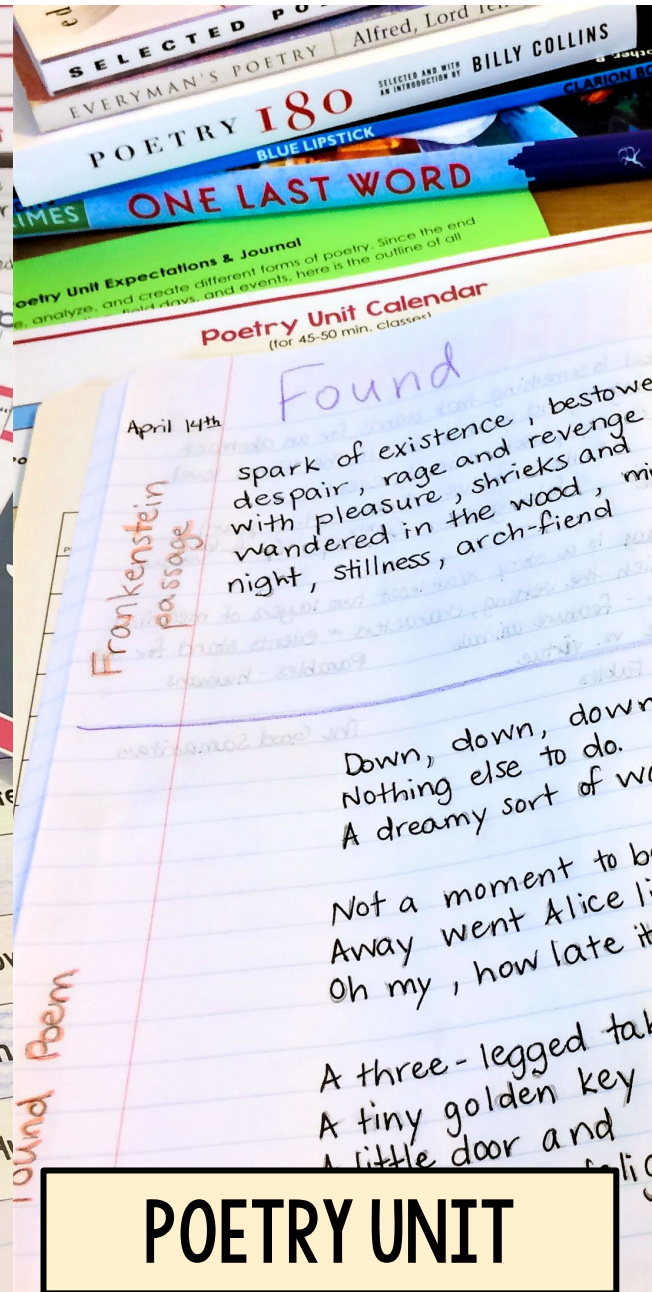 SELECTED
EVERYMAN'S POETRY Alfred, Lord
POETRY 180 SELECTED AND WITH AN INTRODUCTION BY BILLY COLLINS
BLUE LIPSTICK CLARION
ONE LAST WORD
Poetry Unit Expectations & Journal
analyze, and create different forms of poetry. Since the end
field days, and events, here is the outline of all
Poetry Unit Calendar
(for 45-50 min. classes)
Found
April 14th
Frankenstein
passage
spark of existence, bestowe
despair, rage and revenge
with pleasure, shrieks and
wandered in the wood, mi
night, stillness, arch-fiend
Down, down, down
Nothing else to do.
A dreamy sort of wo
Not a moment to b
Away went Alice li
Oh my, how late it
A three-legged tab
A tiny golden key
A little door and
ound Poem
POETRY UNIT